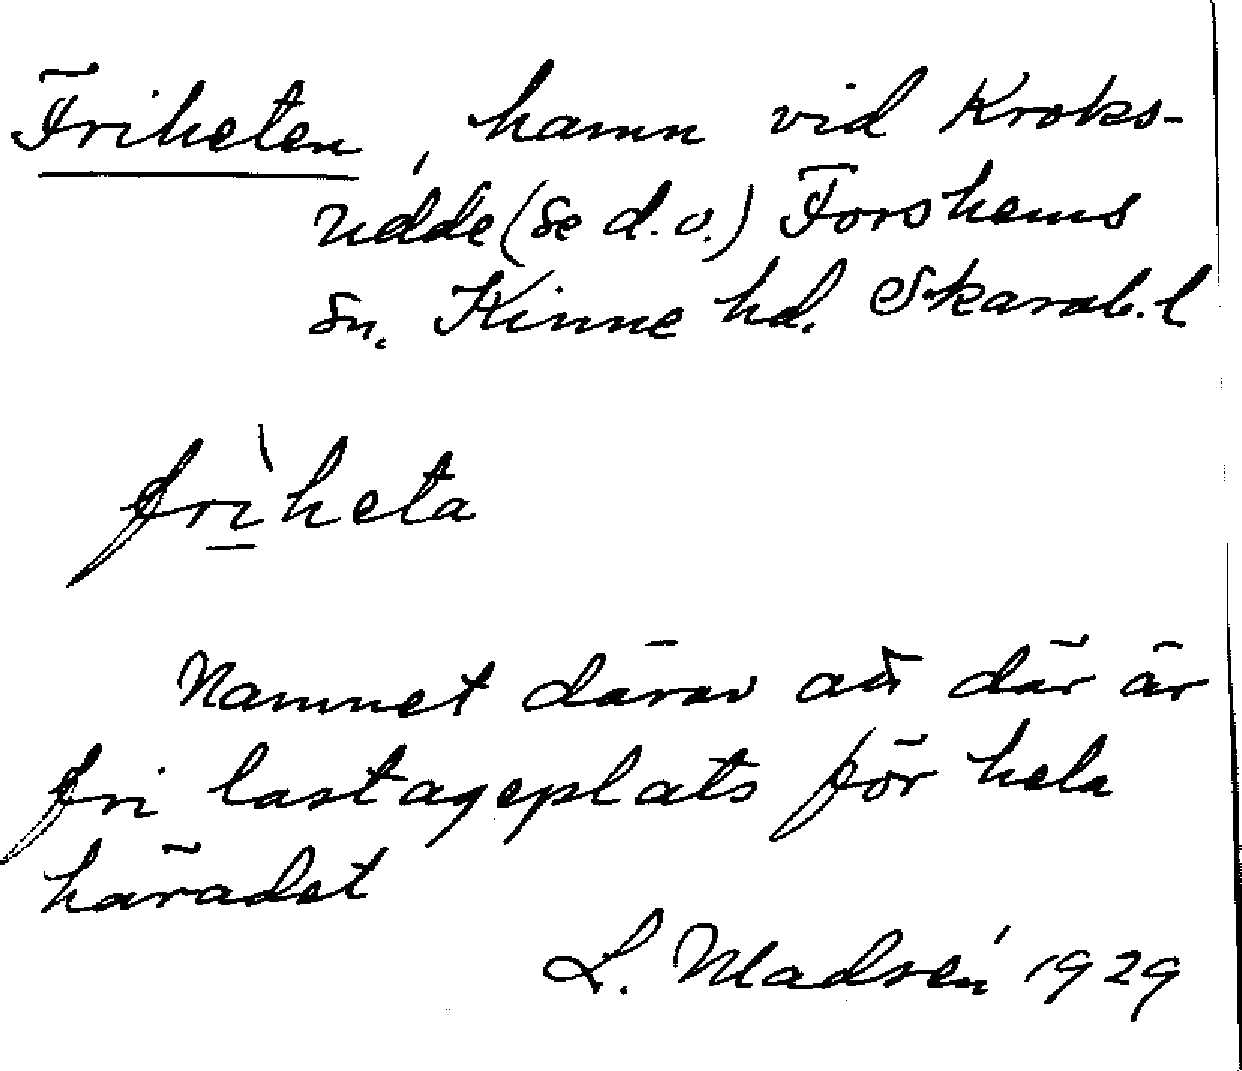 Friheten, hamn vid Kroks-
udde (se d.o.) Forshems
sn. Kinne hd. Skarab. l
frìheta
Namnet därav att där är
fri lastageplats för hela
häradet
L. Madsén 1929